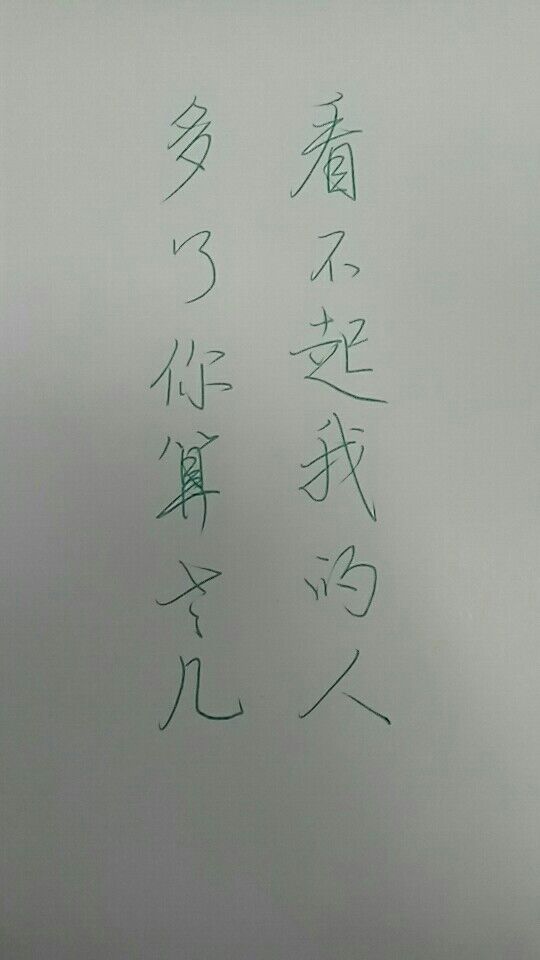 看不起我的人
多了你算老几